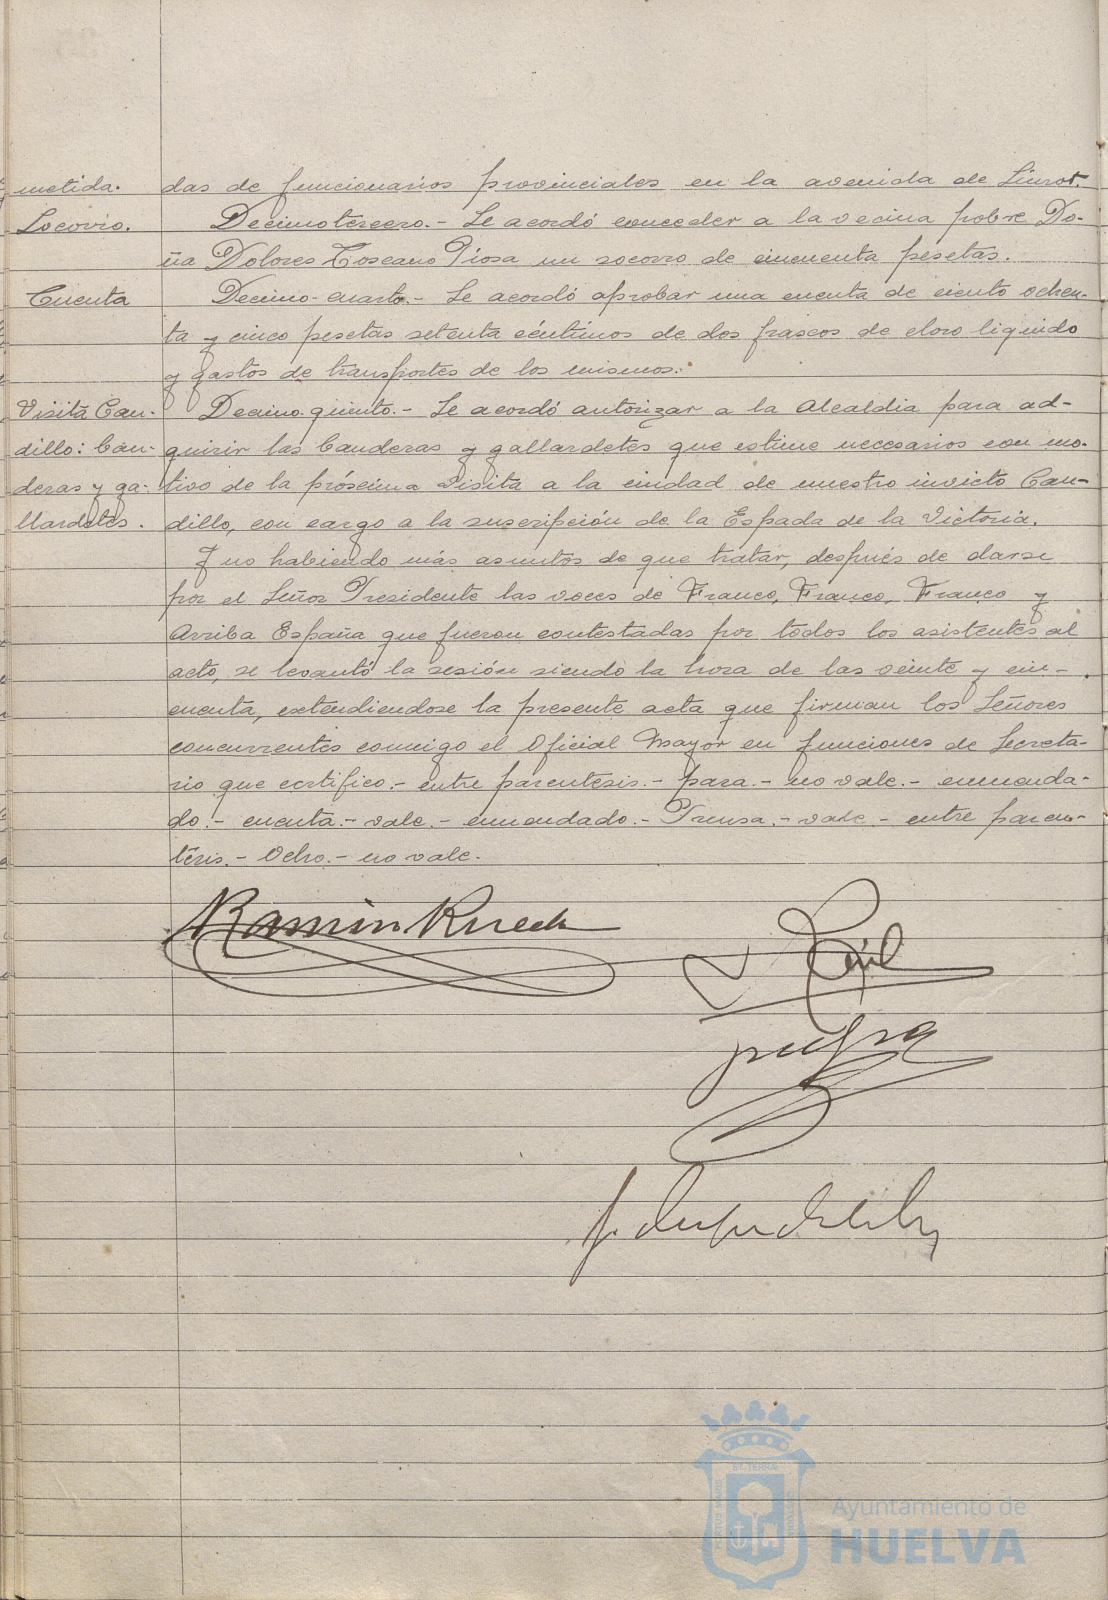 metida. das de funcionarios provinciales en la avenida de Sinrot.
Socorro. Decimotercero.- Se acordó conceder a la vecina pobre Do-
ña Dolores Toscano Piosa un socorro de cincuenta pesetas.
Cuenta Decimo-cuarto.- Se acordó aprobar una cuenta de ciento ochen-
ta y cinco pesetas setenta céntimos de dos frascos de cloro liquido
y gastos de transportes de los mismos.-
Visita Cau- Decimo-quinto.- Se acordó autorizar a la Alcaldia para ad-
dillo: ban- quirir las banderas y gallardetes que estime necesarios con mo-
deras y ga- tivo de la próscima visita a la ciudad de nuestro invicto Cau-
llardetes. dillo, con cargo a la suscripción de la Espada de la Victoria.
Y no habiendo más asuntos de que tratar, después de darse
por el Señor Presidente las voces de Franco, Franco, Franco y
Arriba España que fueron contestadas por todos los asistentes al
acto, se levantó la sesión siendo la hora de las veinte y cin-
cuenta, extendiendose la presente acta que firman los Señores
concurrentes conmigo el Oficial Mayor en funciones de Secreta-
rio que certifico.- entre parentesis.- para.- no vale.- enmenda-
do.- cuenta.- vale.- enmendado.- Prensa.- vale.- entre paren-
tesis.- Ocho.- no vale.
Ramón Rueda
PORTUS MARIS
ET TERRAE
CUSTODIA
Ayuntamiento de
HUELVA